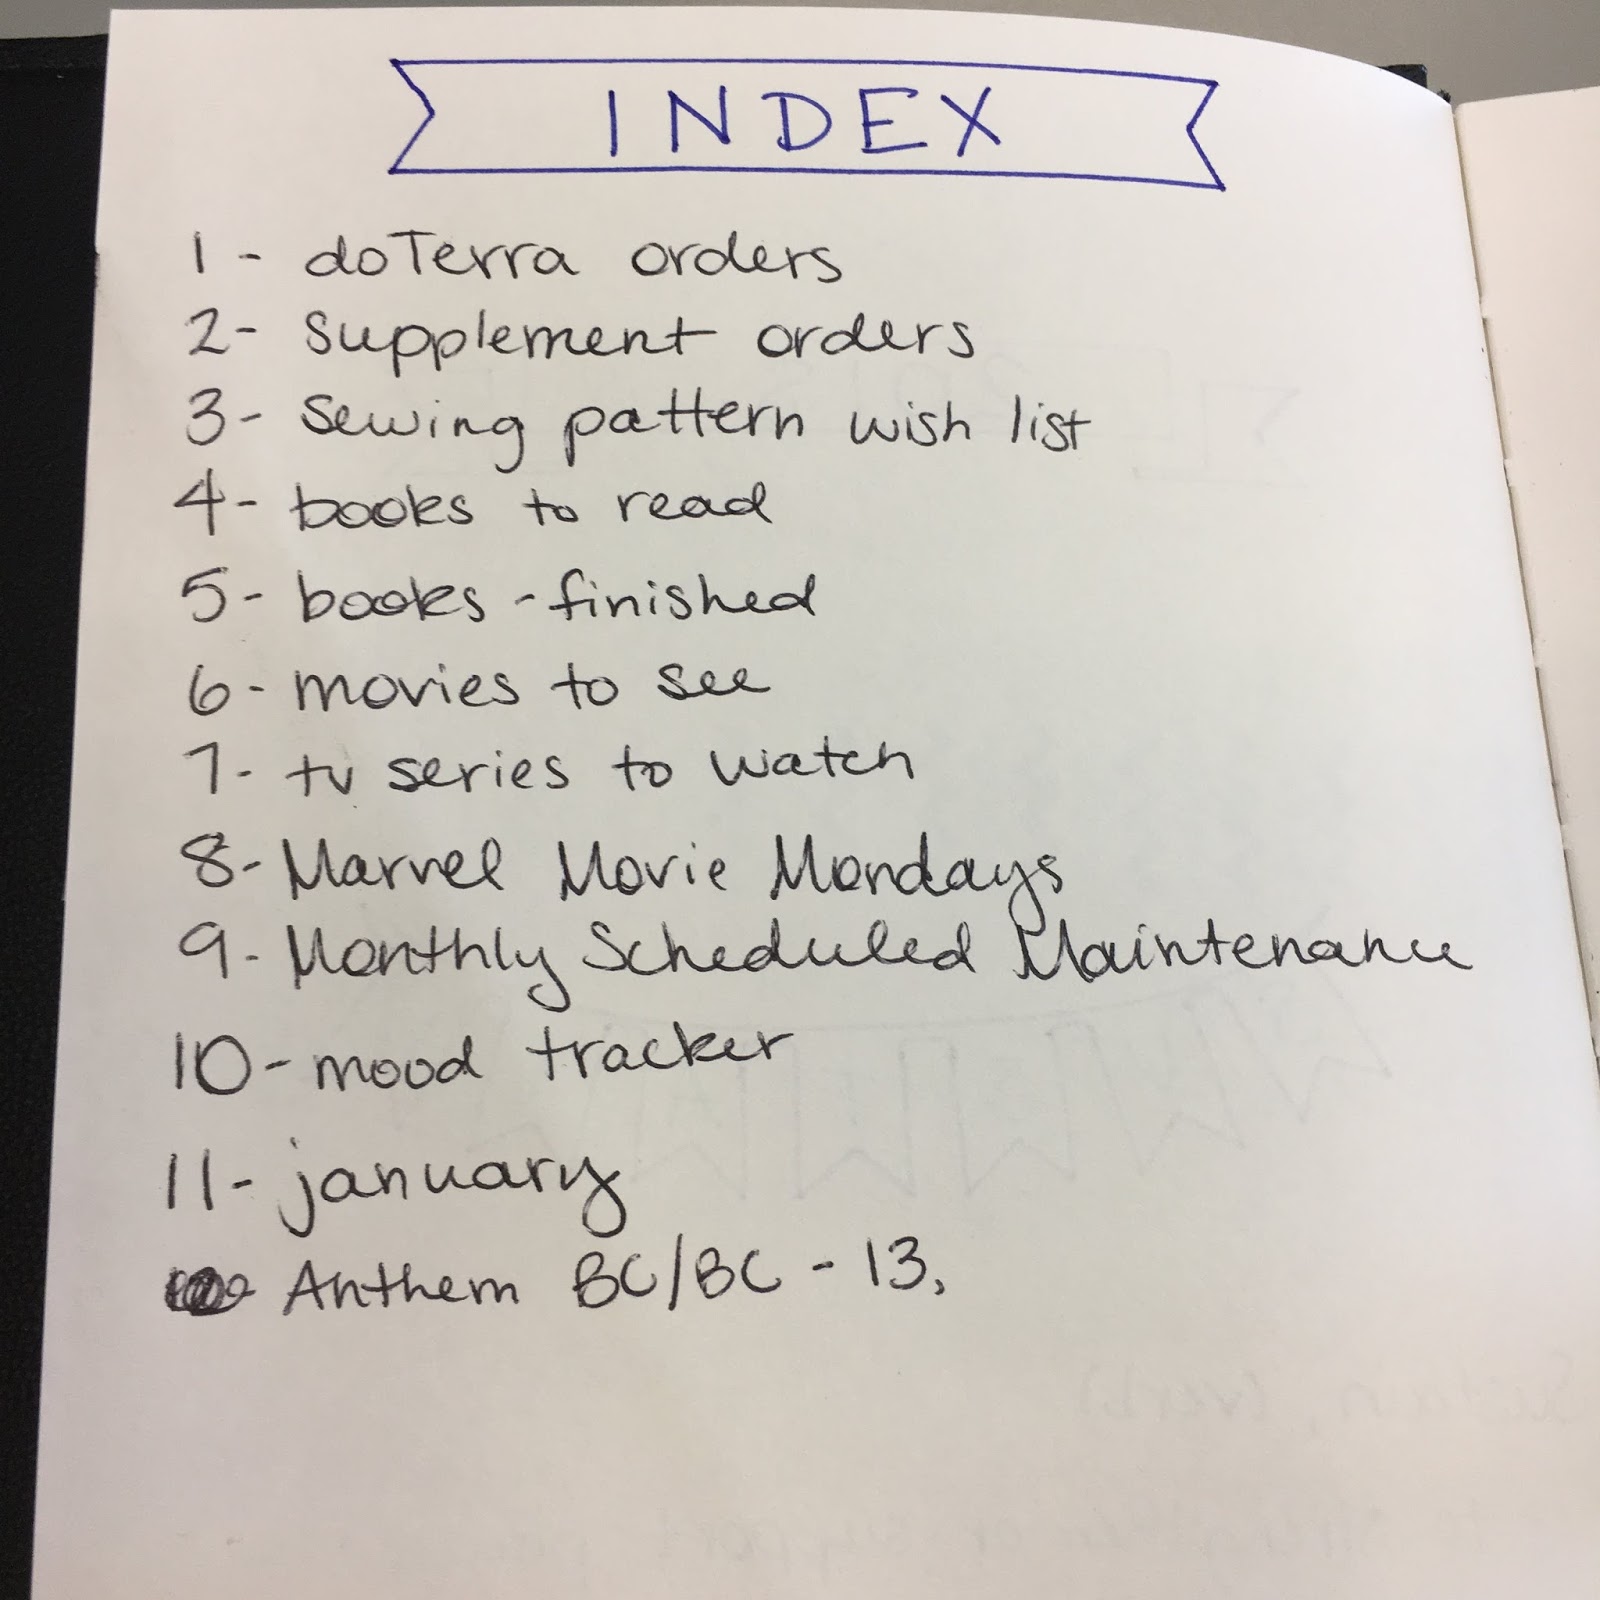 INDEX
1 - doTerra orders
2 - Supplement orders
3 - Sewing pattern wish list
4 - books to read
5 - books - finished
6 - movies to see
7 - tv series to watch
8 - Marvel Movie Mondays
9 - Monthly Scheduled Maintenance
10 - mood tracker
11 - january
- Anthem BC/BC - 13,